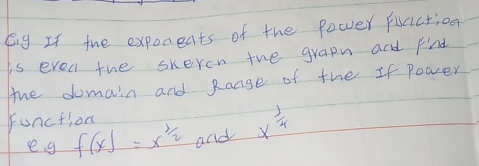 e.g If the exponents of the power function
is even the sketch the graph and find
the domain and Range of the If Power
Function
e.g f(x) = x^1/2 and x^1/4